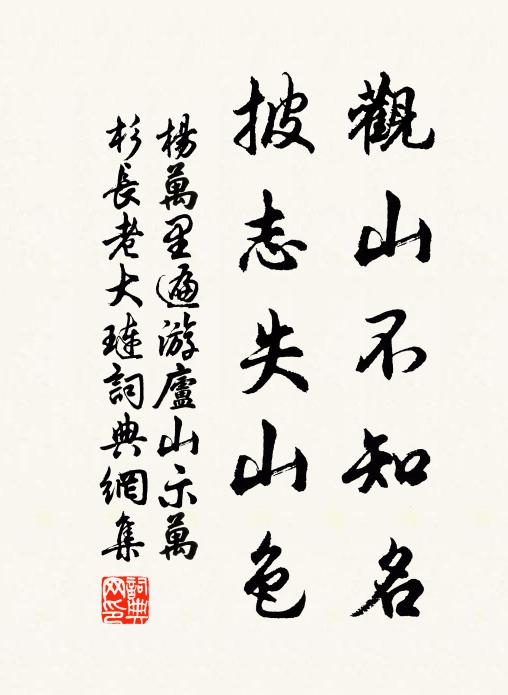 觀山不知名
披志失山色
楊萬里遍游廬山示萬
杉長老大璉詞典網集
詞典
网印